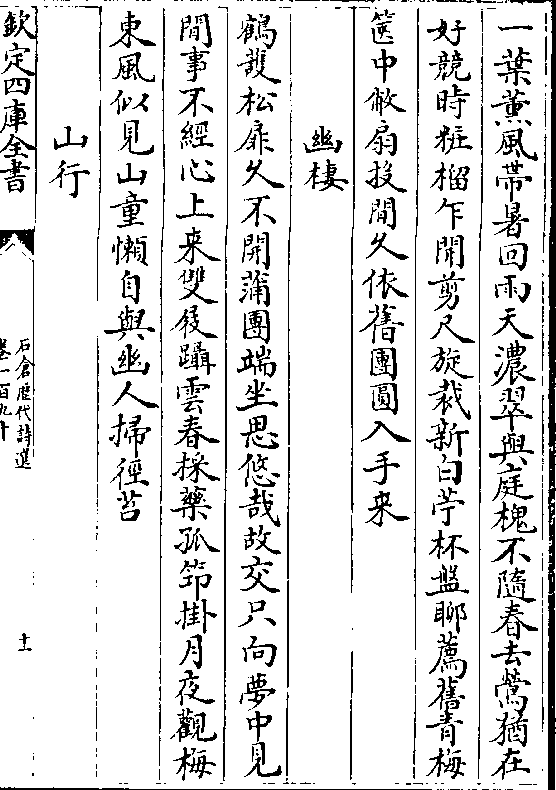 一葉薫風帶暑回雨天濃翠與庭槐不隨春去鶯猶在
好競時粧榴乍開剪尺旋裁新白苧杯盤聊薦舊青梅
篋中敝扇投閒久依舊團圓入手来
幽棲
鶴䕶松扉久不開蒲團端坐思悠哉故交只向夢中見
閒事不經心上来雙屐躡雲春採藥孤筇掛月夜觀梅
東風似見山童懶自與幽人掃徑苔
山行
欽定四庫全書
石倉歴代詩選
卷一百九十
十一